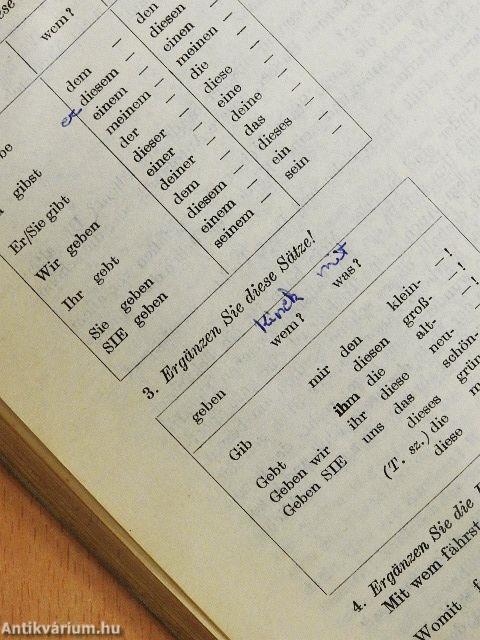 wem?
be
gibst
Er/Sie gibt
Wir geben
Ihr gebt
Sie geben
SIE geben
dem —
diesem —
einem —
meinem —
der —
dieser —
einer —
deiner —
dem —
diesem —
einem —
seinem —
den —
diesen —
einen —
meinen —
die —
diese —
eine —
deine —
das —
dieses —
ein —
sein —
3. Ergänzen Sie diese Sätze!
kinek mit
geben wem? was?
Gib
Gebt
Geben wir
Geben SIE
mir
ihm
ihr
uns
(T. sz.)
den
diesen
die
diese
das
dieses
die
diese
klein- — !
groß- — !
alt-
neu-
schön-
grün
m
4. Ergänzen Sie die
Mit wem fährst
Womit f
Antikvárium.hu